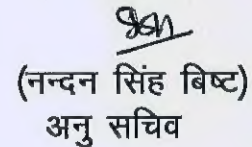 (नन्दन सिंह बिष्ट)
अनु सचिव